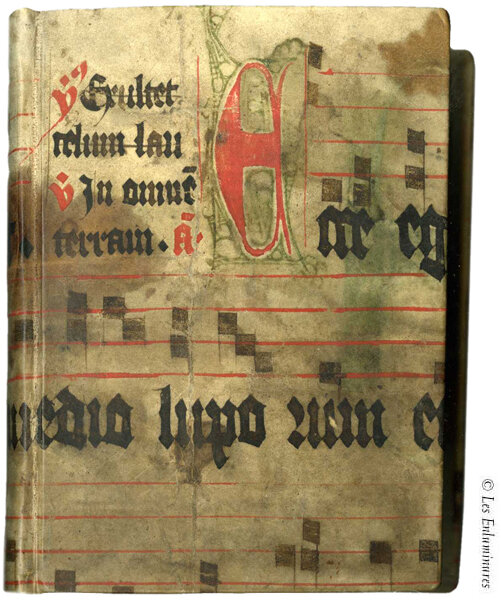 ℣ Exultet
celum lau
℣ In omnē
terram. A.
Ecce eg
medio lupo rum e
© Les Enluminures